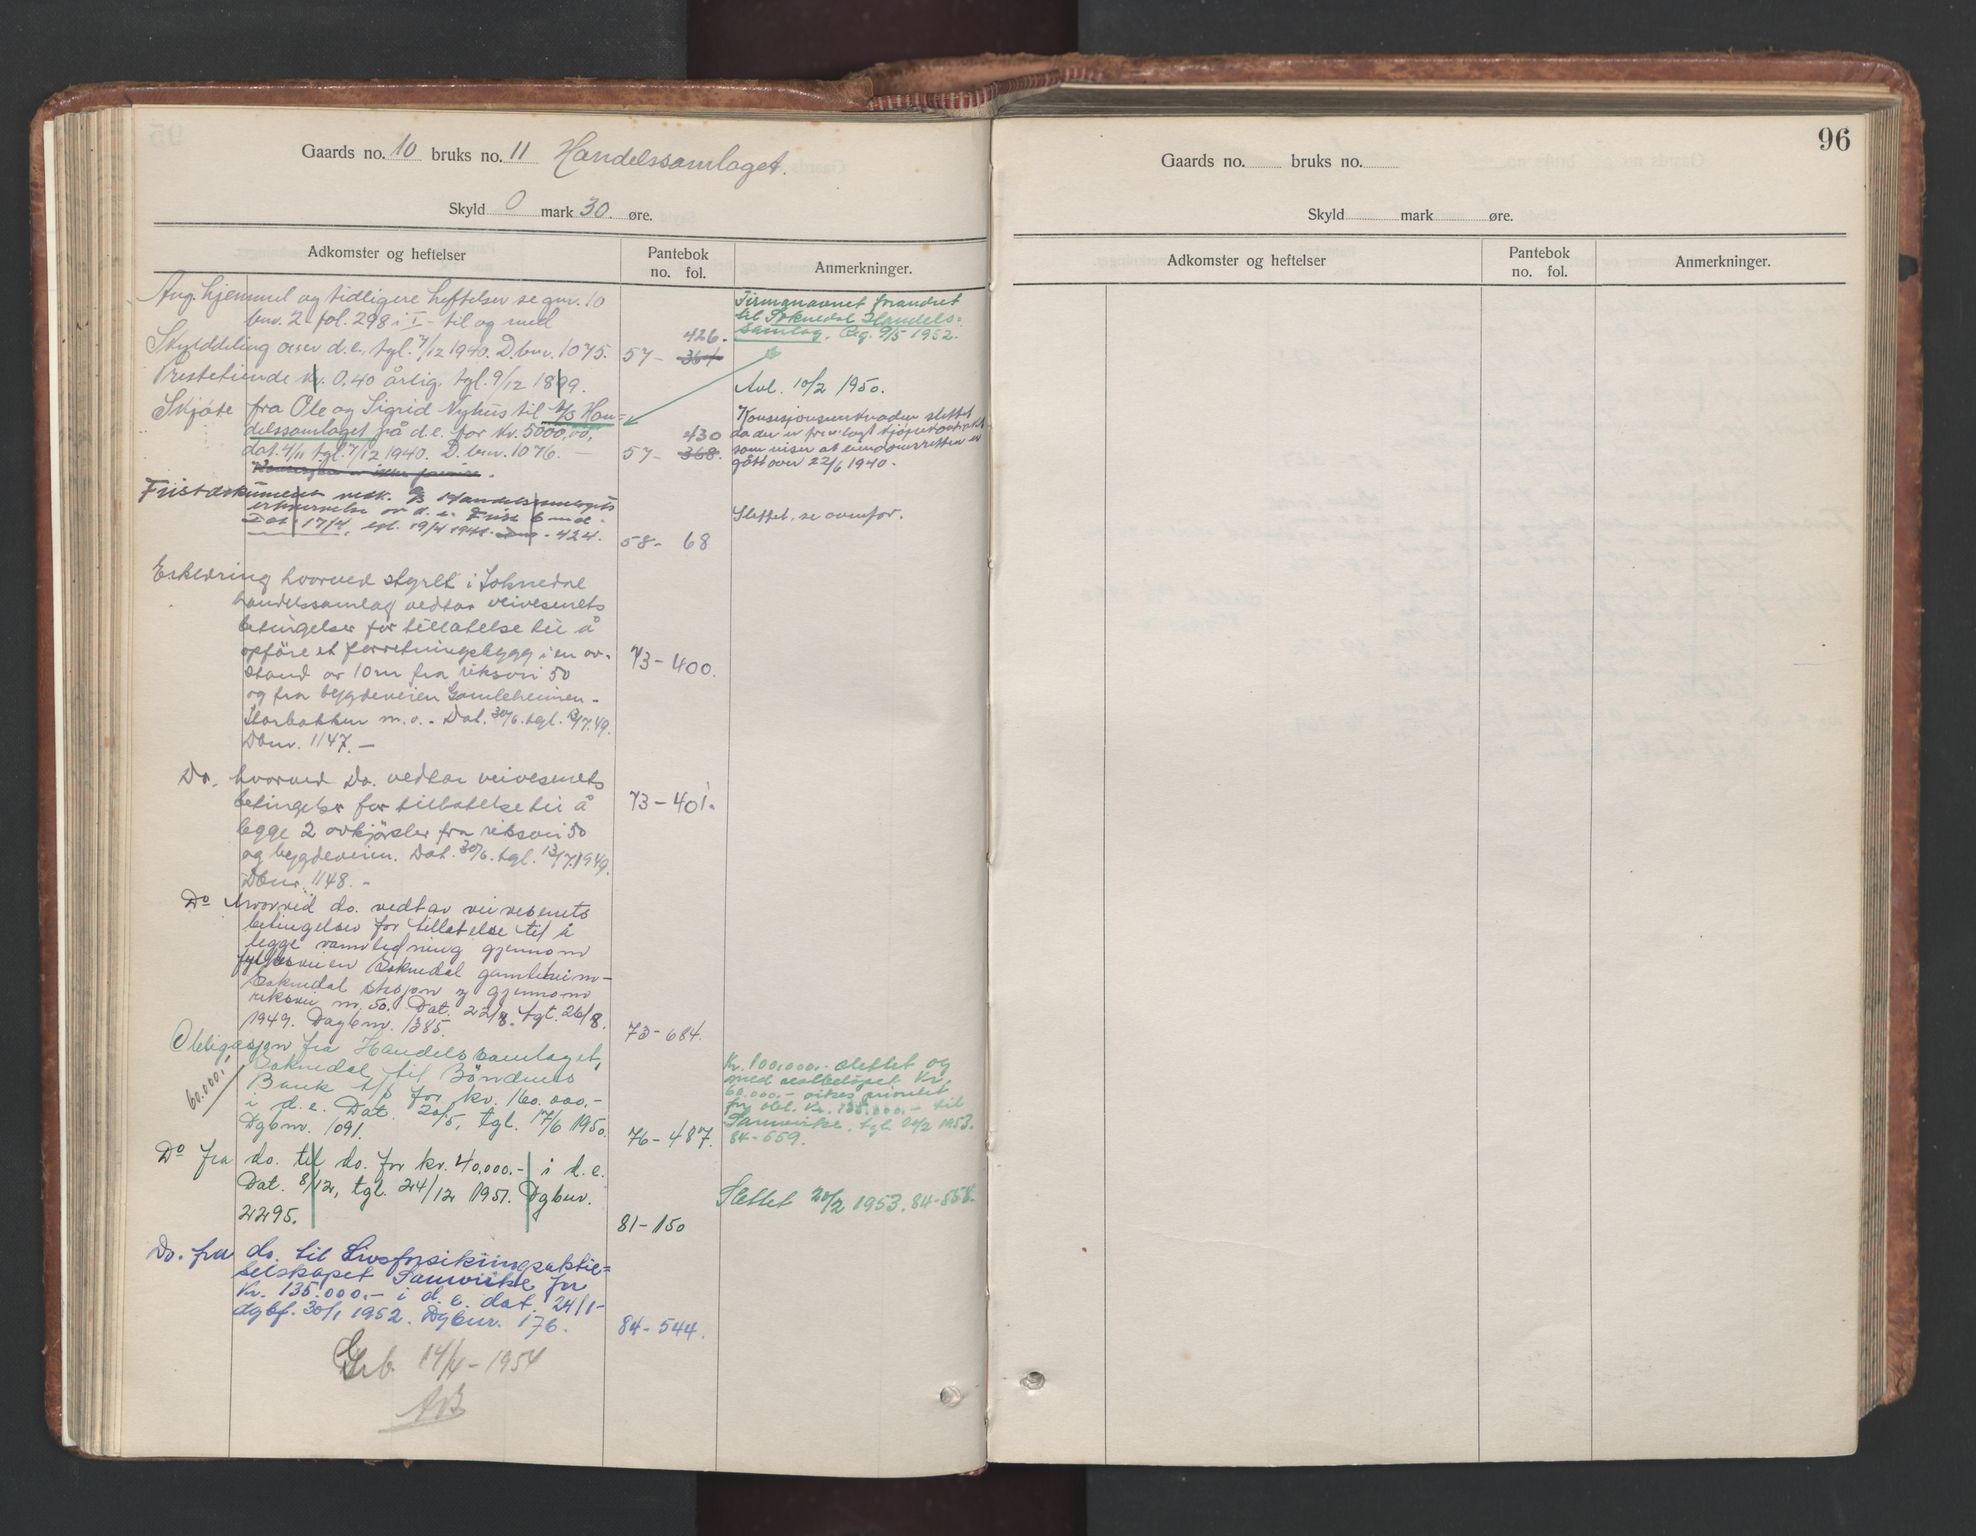 Gaards no. 10 bruks no. 11 Handelssamlaget.
Skyld 0 mark 30 øre.
Adkomster og heftelser
Pantebok
no. fol.
Anmerkninger.
Ang. hjemmel og tidligere heftelser se gnr. 10
bnr. 2 - fol. 298 i I - til og med
Skylddeling over d.e. tgl. 7/12 1940. Dbnr. 1075. 57 - 364 426.
Prestetiende kr. 0,40 årlig. tgl. 9/12 1899.
Skjøte fra Ole og Sigrid Nyhus til A/S Han=
delssamlaget på d.e. for kr. 5000,00,
dat. 4/11 tgl. 7/12 1940. D.bnr. 1076. — 57 - 368. 430
Konsesjon er ikke
Fristdokument vedk. A/S Handelssamlagets
erhvervelse av d.e. Frist 6 md.
Dat. 17/4, tgl. 19/4 1941. Dbnr. 424. 58 - 68
Erklæring hvorved styret i Soknedal
handelssamlag vedtar veivesenets
betingelser for tillatelse til å
opføre et forretningsbygg i en av-
stand av 10 m fra riksvei 50
og fra bygdeveien Gamleheimen -
Storbakken m.v. - Dat. 30/6. tgl. 13/7.49.
Dbnr. 1147. —
73 - 400.
Do. hvorved Do. vedtar veivesenets
betingelser for tillatelse til å
legge 2 avkjørsler fra riksvei 50
og bygdeveien. Dat. 30/6. tgl. 13/7.1949.
Dbnr. 1148. -
73 - 401.
Do hvorved do. vedtar veivesenets
betingelser for tillatelse til å
legge vannledning gjennom
fylkesveien Soknedal gamleheim -
Soknedal stasjon og gjennom
riksvei nr. 50. Dat. 22/8. tgl. 26/8.
1949. Dagbnr. 1385. 73 - 684.
Obligasjon fra Handelssamlaget,
Soknedal til Bøndenes
Bank A/S for kr. 160.000,-
i d.e. Dat. 20/5, tgl. 17/6 1950.
Dgbnr. 1091. 76 - 487.
60.000,-
Do fra do. til do. for kr. 40.000.- i d.e.
Dat. 8/12, tgl. 24/12 1951. Dgbnr.
2295. 81 - 150
Do. fra do. til Livsforsikringsaktie=
selskapet Samvirke for
Kr. 135.000.- i d.e. dat. 24/1 -
dgbf. 30/1 1952. Dgbnr. 176. 84 - 544.
Grb. 14/4 - 1954
Firmanavnet forandret
til Soknedal Handels-
samlag. Reg. 9/5 1952.
Avl. 10/2 1950.
Konsesjonsanknaden slettet
da der er fremlagt kjøpekontrakt
som viser at eiendomsretten er
gått over 22/6 1940.
Slettet, se ovenfor.
Kr. 100.000.- slettet og
med restbeløpet Kr.
60.000.- vikes prioritet
for obl. Kr. 135.000.- til
Samvirke, tgl. 20/2 1953.
84 - 559.
Slettet 20/2 1953. 84 - 558.
96
Gaards no. bruks no.
Skyld mark øre.
Adkomster og heftelser
Pantebok
no. fol.
Anmerkninger.